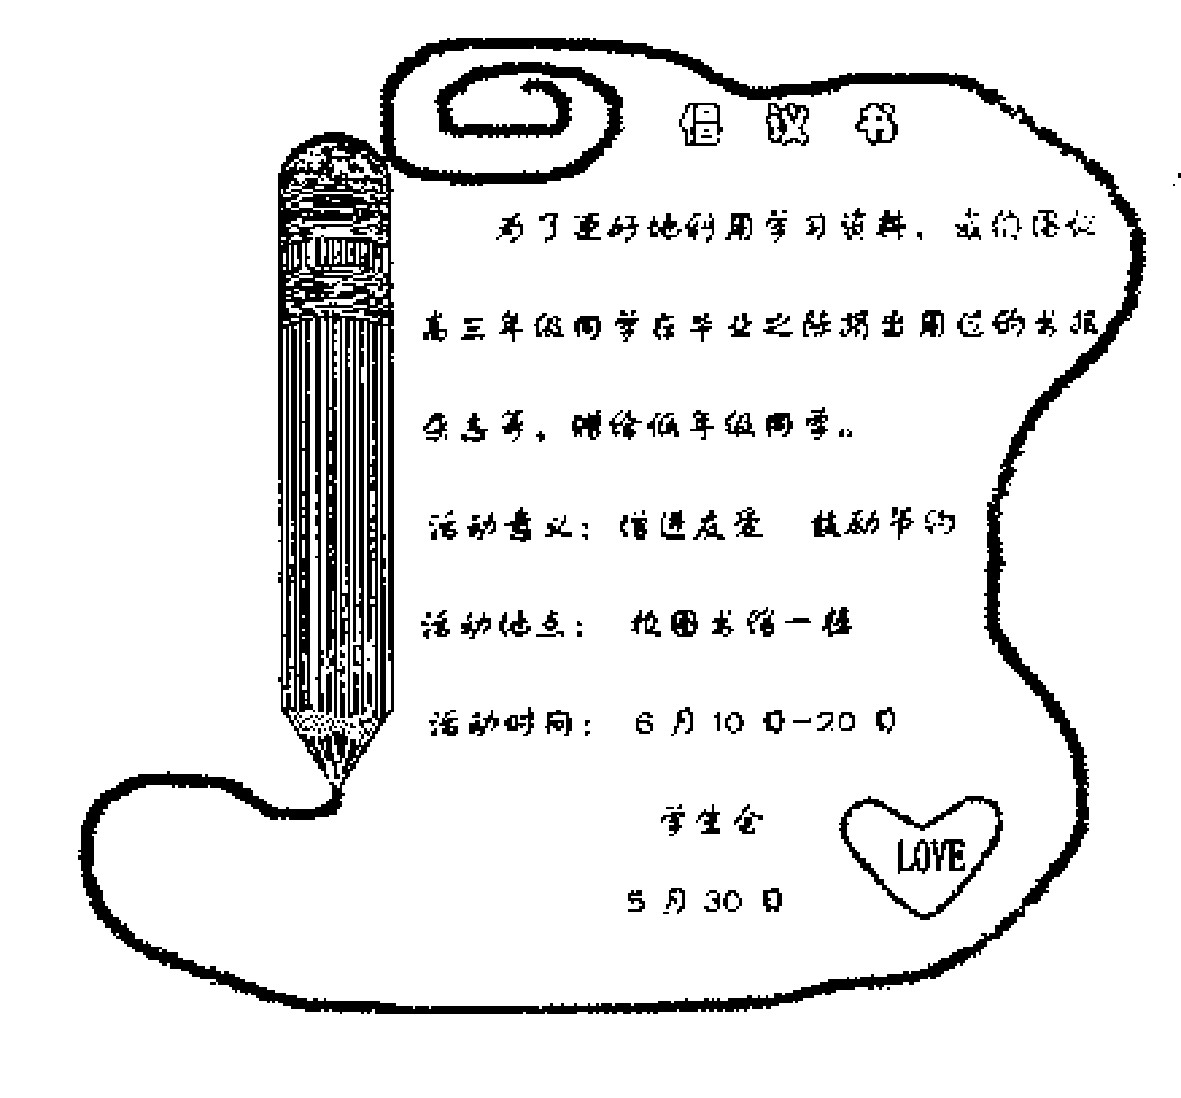 倡议书
为了更好地利用学习资料,我们倡议
高三年级同学在毕业之际捐出用过的书报
杂志等,赠给低年级同学。
活动意义:增进友爱 鼓励节约
活动地点:校图书馆一楼
活动时间:6月10日-20日
学生会
LOVE
5月30日